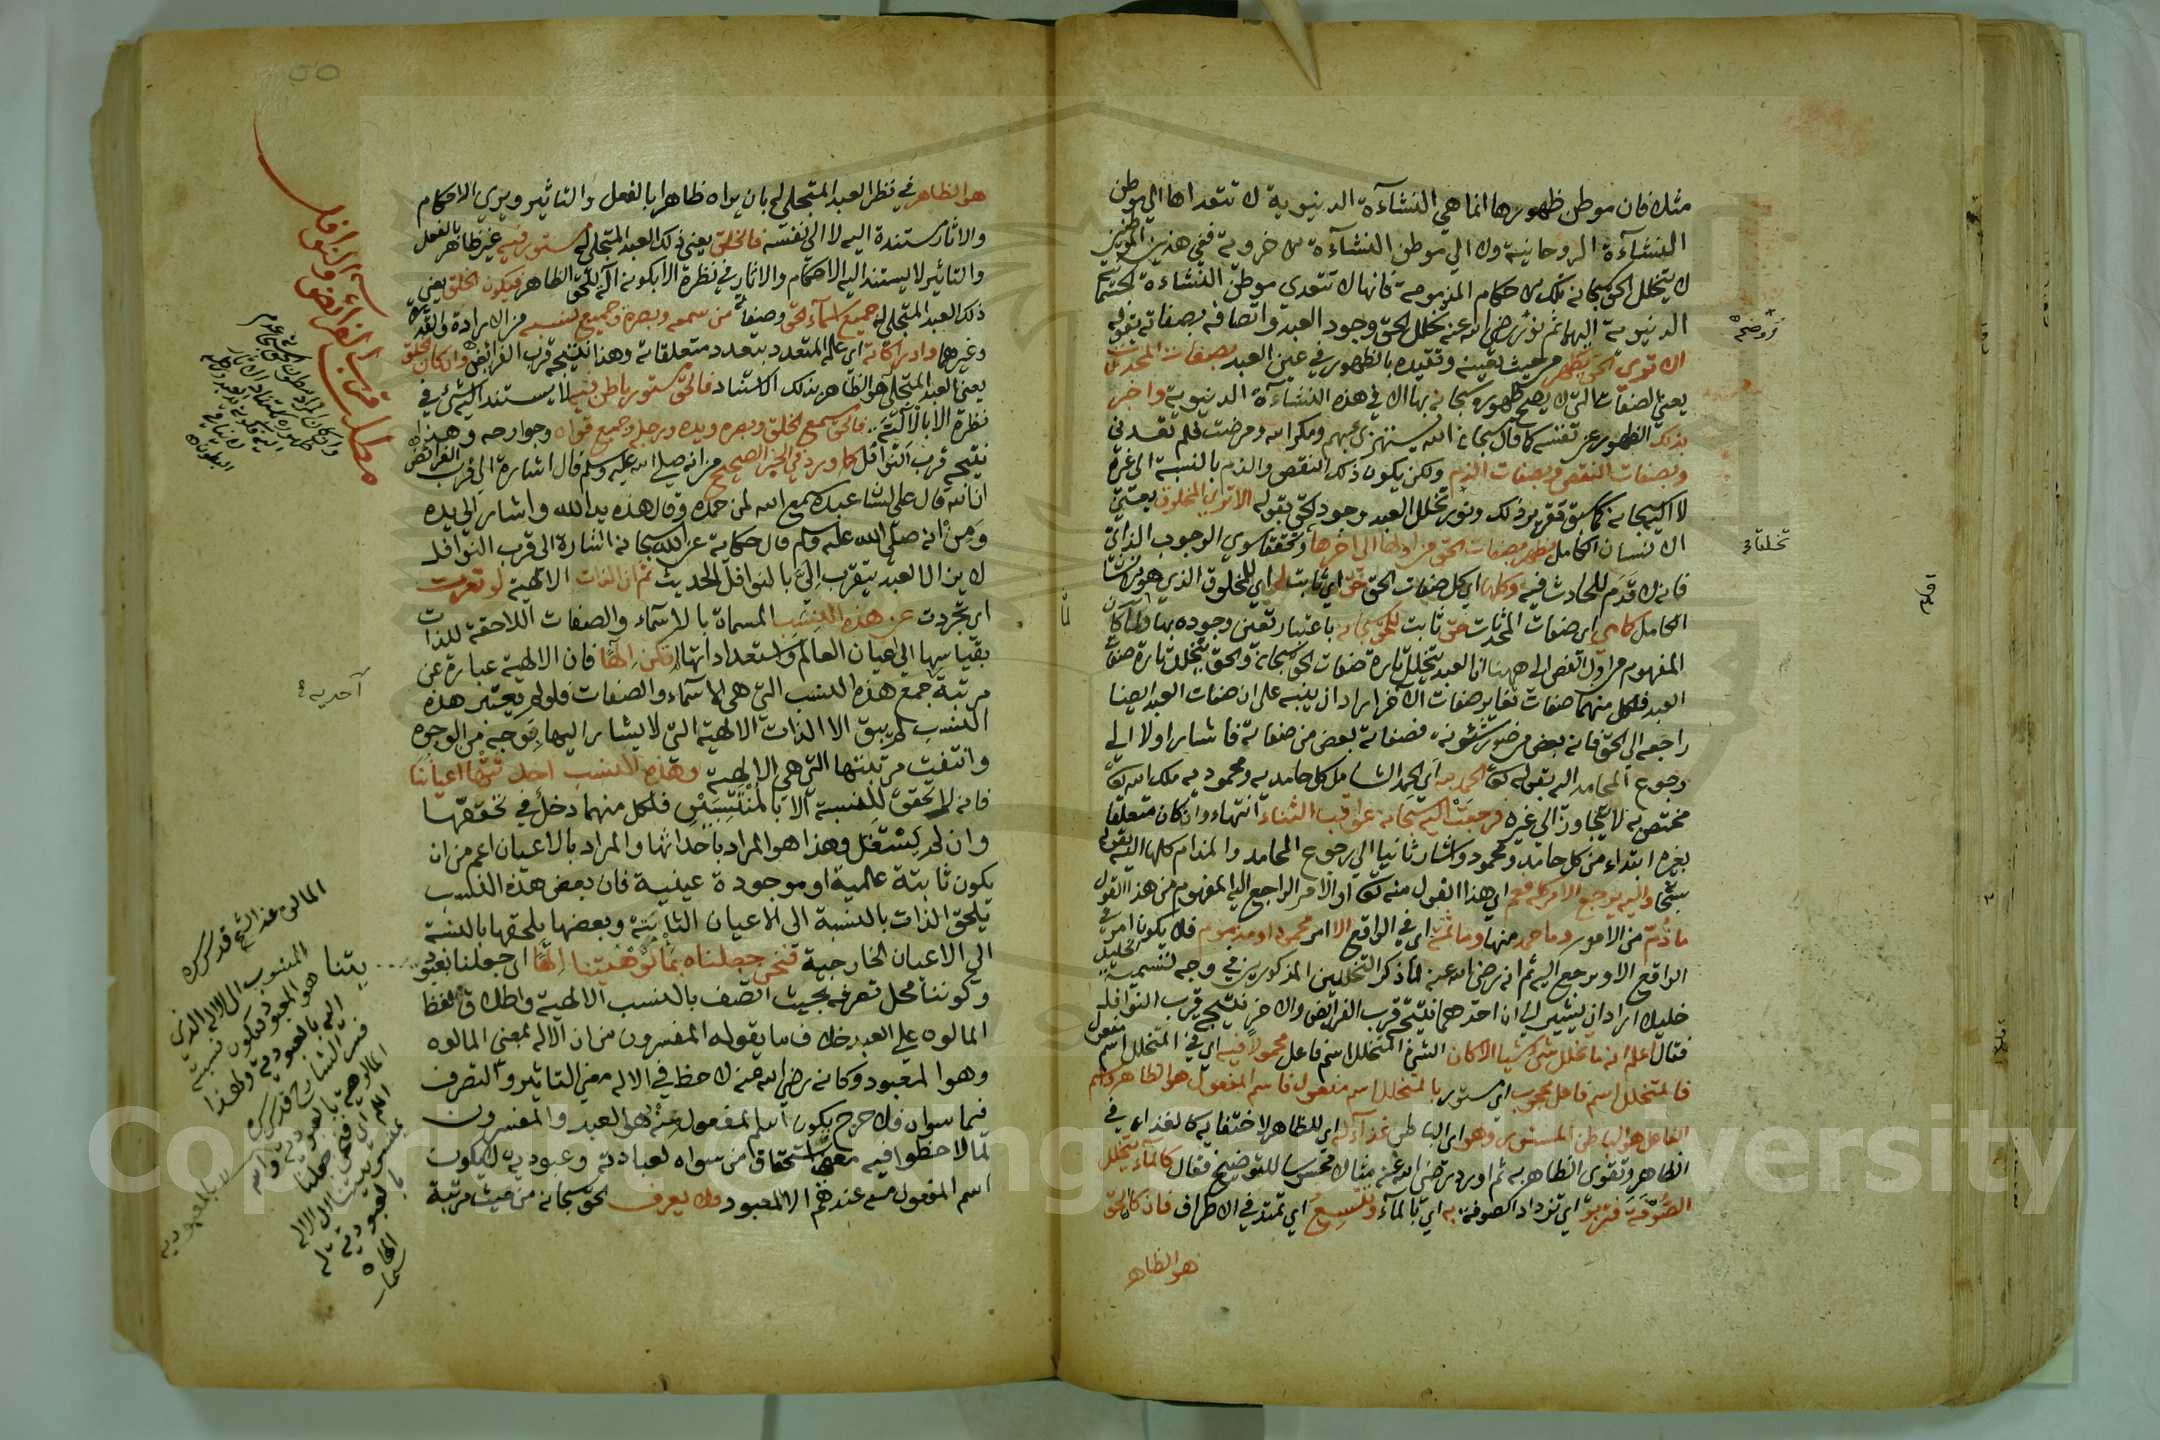 مثلا فان موطن ظهورها انما هي النشاءة الدنيوية لا تتعداها الى موطن
النشاءة الروحانية ولا الى موطن النشاءة الاخروية ففي هذين الموطنين
لا يتخلل الحق سبحانه بتلك الاحكام المذمومة فانها لا تتعدى موطن النشاءة
الدنيوية اليهما ثم نور رضي الله عنه تخلل الحق وجود العبد واتصافه بصفاته بقوله
الا ترى الحق يظهر من حيث تعينه وتقيده بالظهور في عين العبد بصفات المحدثات
يعني الصفات التي لا يصح ظهوره سبحانه بها الا في هذه النشاءة الدنيوية واخبر
بذلك الظهور عن نفسه كما قال سبحانه الله يستهزئ بهم ومكر الله ومرضت فلم تعدني
وبصفات النقص وبصفات الذم ولكن يكون ذلك النقص والذم بالنسبة الى غيره
لا اليه سبحانه كما سبق تقريره ذلك ونور تخلل العبد وجود الحق بقوله الا ترى المخلوق يعني
الانسان الكامل يظهر بصفات الحق من اولها الى اخرها وتحققا سوى الوجوب الذاتي
فانه لا قدم للحادث فيه وكلها اي كل صفات الحق حق اي ثابت له اي للمخلوق الذي هو الانسان
الكامل كما هي اي صفات المحدثات حق ثابت للحق سبحانه باعتبار تعين وجوده بها ولما كان
المفهوم من اول الفص الى ههنا ان العبد يتخلل تارة صفات الحق سبحانه والحق يتخلل تارة صفات
العبد فلكل منهما صفات تغاير صفات الاخر اراد ان ينبه على ان صفات العبد ايضا
راجعة الى الحق فانه بعض من صور شئونه فصفاته بعض من صفاته فاشار اولا الى
رجوع المحامد اليه بقوله تعالى الحمد لله اي الحمد الشامل كل حامديه ومحموديه ملك الله تعالى
مختص به لا يتجاوز الى غيره فرجعت اليه سبحانه عواقب الثناء انتهاء وان كان متعلقا
بغيره ابتداء من كل حامد ومحمود واشار ثانيا الى رجوع المحامد والمذام كلها اليه بقوله
واليه يرجع الامر كله فعم اي هذا القول منه تعالى او الامر الراجع اليه المفهوم من هذا القول
ما ذم من الامور وما حمد منها وما ثمة اي في الواقع الا امر محمود او مذموم فلا يكون امر في
الواقع الا ويرجع اليه ثم انه رضي الله عنه لما ذكر التخللين المذكورين في وجه تسمية الخليل
خليلا اراد ان يشير الى ان احدهما نتيجة قرب الفرائض والاخر نتيجة قرب النوافل
فقال اعلم انه ما تخلل شئ شيئا الا كان الشئ المتخلل اسم فاعل محمولا فيه اي في المتخلل اسم مفعول
فالمتخلل اسم فاعل محجوب اي مستور بالمتخلل اسم مفعول فاسم المفعول هو الظاهر واسم
الفاعل هو الباطن المستور وهو اي الباطن غذاء له اي للظاهر لاختفائه كالغذاء في
الظاهر وتقوى الظاهر به ثم اورد رضي الله عنه مثالا محسوسا للتوضيح فقال كالماء يتخلل
الصوفة فتربو اي تزداد الصوفة به اي بالماء وتتسع اي تمتد في الاطراف فان كان الحق
هو الظاهر
تخلقا
لما
هو الظاهر في نظر العبد المتجلى له بان يراه ظاهرا بالفعل والتاثير ويرى الاحكام
والاثار مستندة اليه لا الى نفسه فالخلق يعني ذلك العبد المتجلى له مستور فيه غير ظاهر بالفعل
والتاثير لا يستند اليه الاحكام والاثار في نظره الا بكونه آلة للحق الظاهر فيكون الخلق يعني
ذلك العبد المتجلى له جميع اسماء الحق وصفاته من سمعه وبصره وجميع نسبه من الارادة والقدرة
وغيرهما وادراكاته اي علمه المتعدد بتعدد متعلقاته وهذا نتيجة قرب الفرائض وان كان الخلق
يعني العبد المتجلى له هو الظاهر بذلك الاسناد فالحق مستور باطن فيه لا يستند اليه شئ في
نظره الا بالآلية فالحق سمع الخلق وبصره ويده ورجله وجميع قواه وجوارحه وهذا
نتيجة قرب النوافل كما ورد في الخبر الصحيح من انه صلى الله عليه وسلم قال اشارة الى قرب الفرائض
ان الله قال على لسان عبده سمع الله لمن حمده وقال هذه يد الله واشار الى يده
ومن انه صلى الله عليه وسلم قال حكاية عن الله سبحانه اشارة الى قرب النوافل
لا يزال العبد يتقرب الي بالنوافل الحديث ثم ان الذات الالهية لو تعرت
اي تجردت عن هذه النسب المسماة بالاسماء والصفات اللاحقة للذات
بقياسها الى اعيان العالم واستعداداتها لم تكن الها فان الالهية عبارة عن
مرتبة جمع هذه النسب التي هي الاسماء والصفات فلو لم يعتبر هذه
النسب لم يبق الا الذات الالهية التي لا يشار اليها بوجه من الوجوه
وانتفت مرتبتها التي هي الالهية وهذه النسب احدثتها اعياننا
فانه لا تحقق للنسبة الا بالمنتسبين فلكل منهما دخل في تحققها
وان لم يستقل وهذا هو المراد باحداثها والمراد بالاعيان اعم من ان
يكون ثابتة علمية او موجودة عينية فان بعض هذه النسب
يلحق الذات بالنسبة الى الاعيان الثابتة وبعضها يلحقها بالنسبة
الى الاعيان الخارجية فنحن جعلناه بمألوهيتنا الها اي جعلنا بعبوديتنا
وكوننا محل تصرفه بحيث اتصف بالنسب الالهية واطلاق لفظ
المالوه على العبد خلاف ما يقوله المفسرون من ان الاله بمعنى المالوه
وهو المعبود وكانه رضي الله عنه لاحظ في الاله معنى التاثير والتصرف
فيما سواه فلا جرم يكون اسم المفعول منه هو العبد والمفسرون
لما لاحظوا فيه معنى استحقاق من سواه لعبادته وعبوديته ليكون
اسم المفعول منه عندهم الا المعبود فلا يعرف الحق سبحانه من حيث مرتبة
مطلب قرب الفرائض والنوافل
المالوه عند الشيخ قدس سره
المنسوب الى الاله الذي
هو المعبود فيكون نسبته
اليه بالعبودية ولهذا